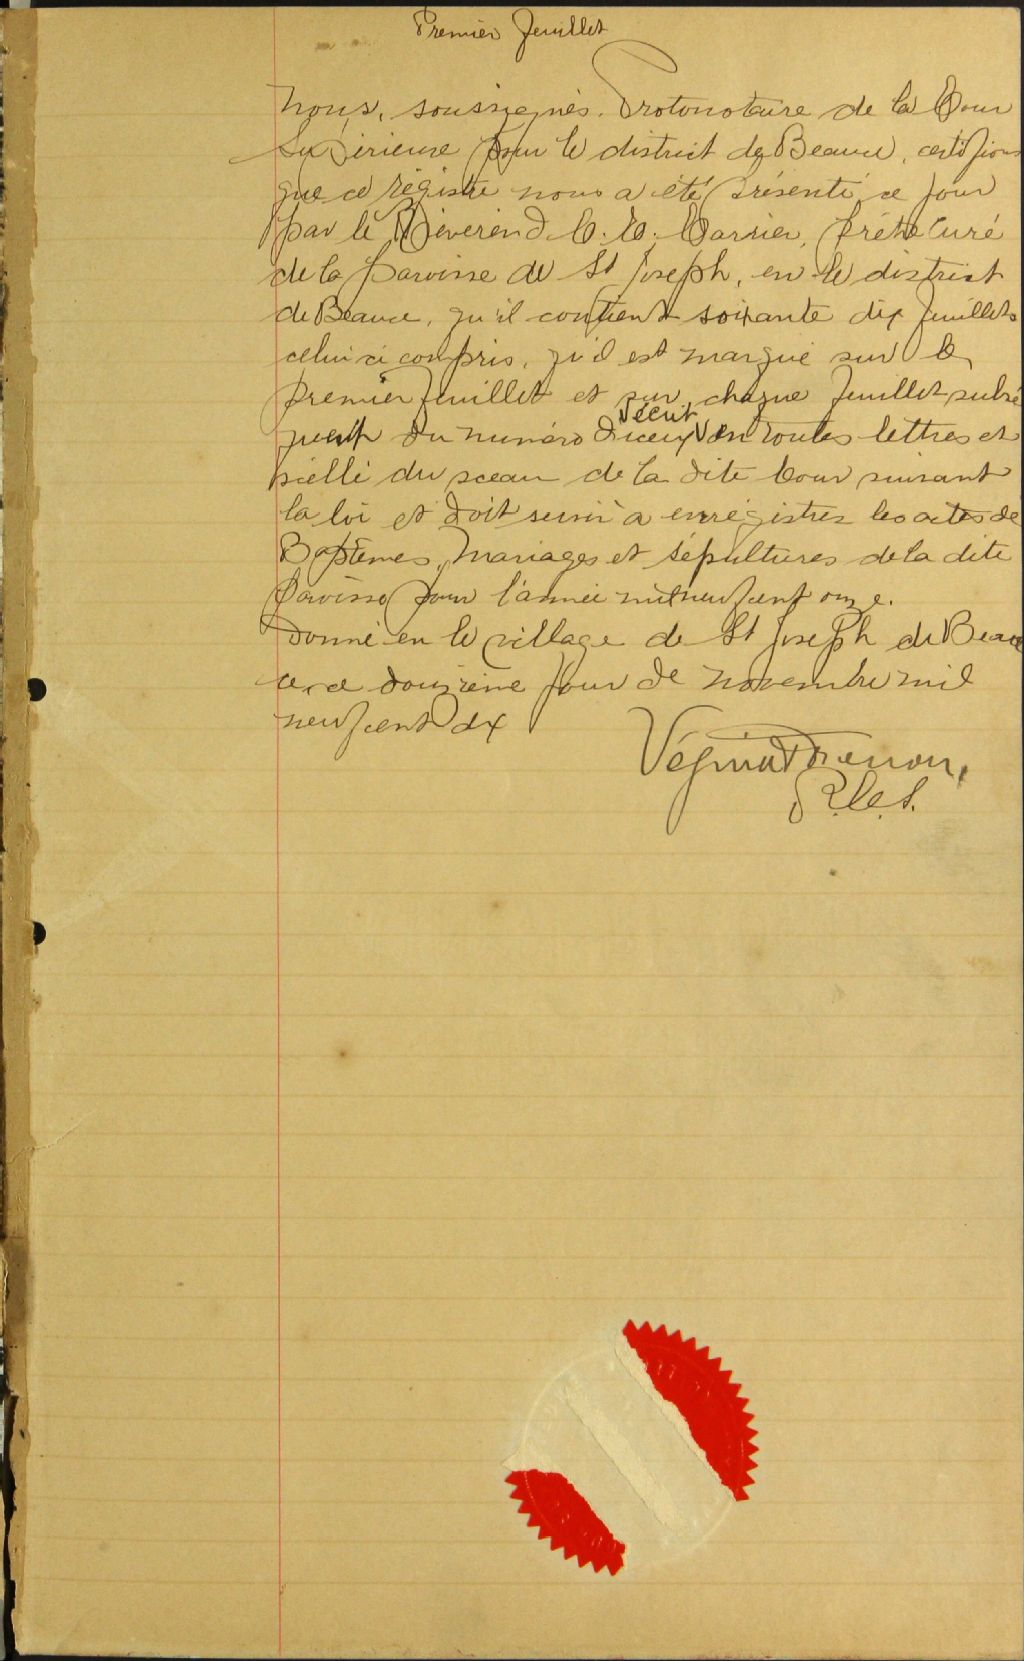 Premier feuillet
Nous, soussignés, Protonotaire de la Cour
Supérieure pour le district de Beauce, certifions
que ce régistre nous a été présenté ce jour
par le Révérend
de la paroisse de St Joseph, en le district
de Beauce, qu'il contient soixante dix feuillets
celui ci compris, qu'il est marqué sur le
premier feuillet et sur chaque feuillet subsé
quent du numéro d'iceux √écrit√ en toutes lettres et
scellé du sceau de la dite Cour suivant
la loi et doit servir à enrégistrer les actes de
Baptêmes, Mariages et sépultures de la dite
Paroisse pour l'année mil neuf cent onze.
Donné en le village de St Joseph de Beau
ce, ce douzième jour de novembre mil
neuf cent dix
P.C.S.